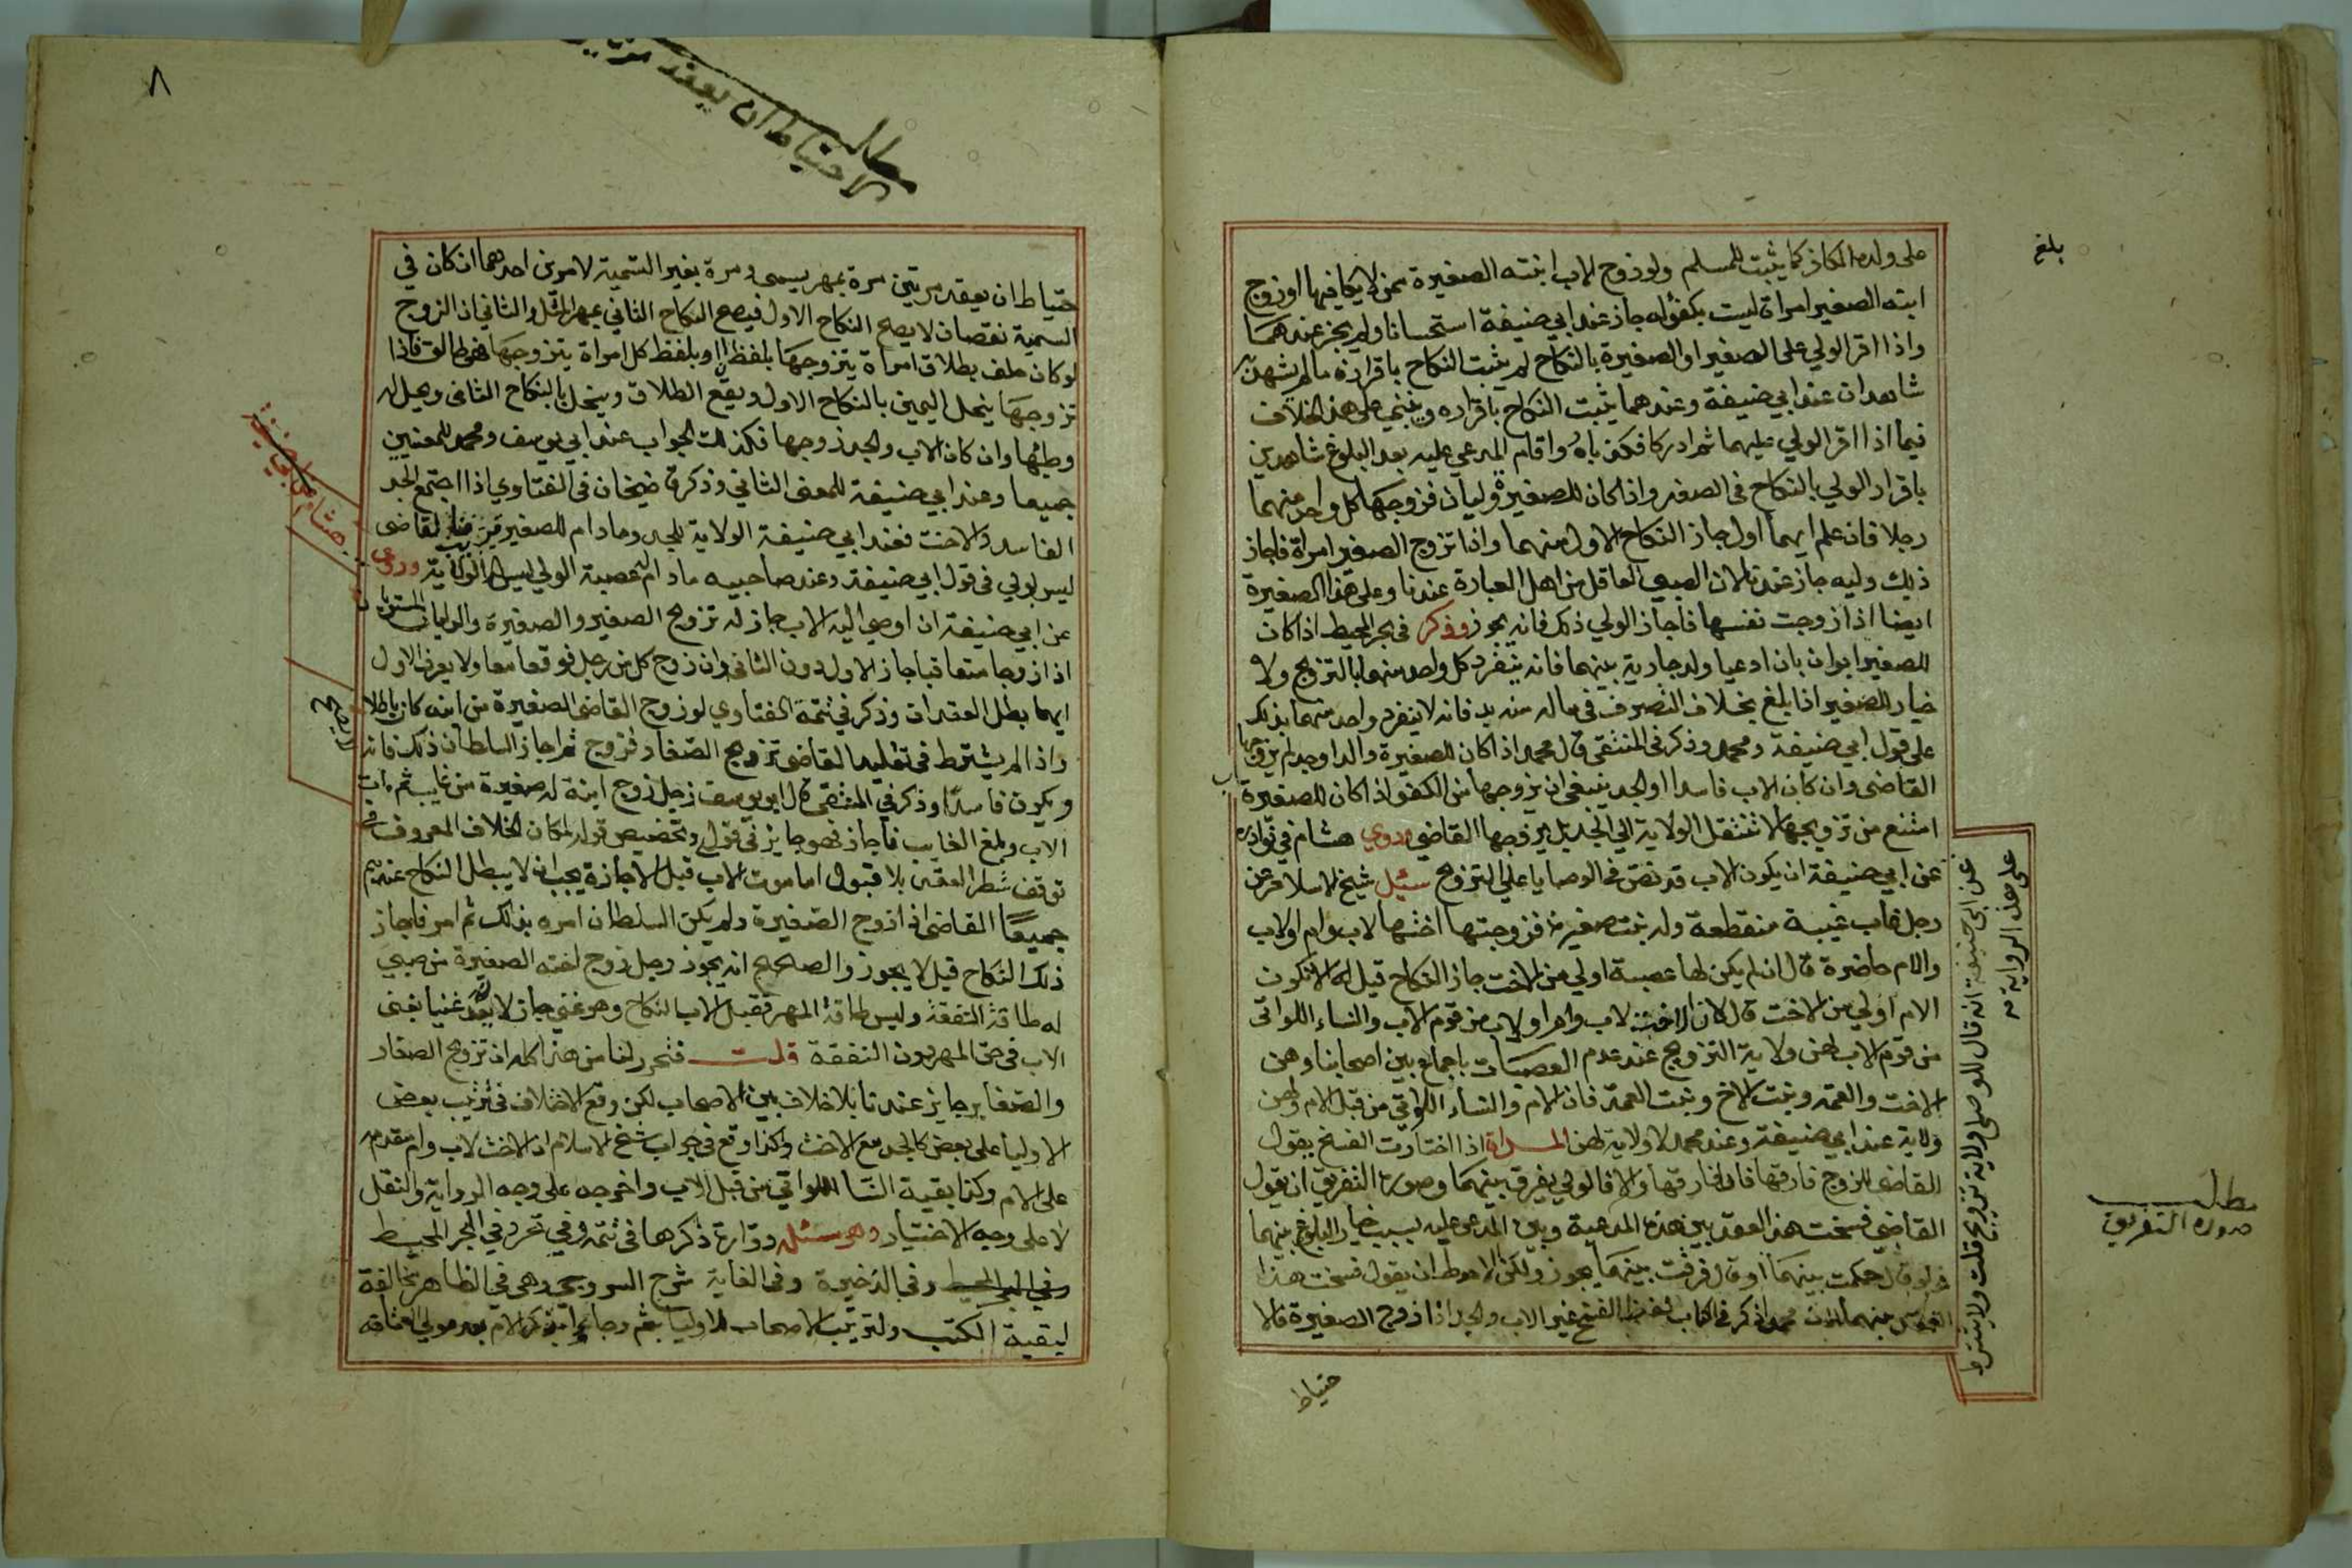 بلغ
على ولده الكافر كما يثبت للمسلم ولو زوج الاب ابنته الصغيرة ممن لا يكافيها او زوج
ابنه الصغير امراة ليست بكفؤ له جاز عند ابي حنيفة استحسانا ولم يجز عندهما
واذا اقر الولي على الصغير او الصغيرة بالنكاح لم يثبت النكاح باقراره ما لم يشهد
شاهدان عند ابي حنيفة وعندهما يثبت النكاح باقراره على هذا الخلاف
فيما اذا اقر الولي عليهما ثم ادركا فكذباه واقام المدعي عليه بعد البلوغ شاهدين
باقرار الولي بالنكاح في الصغر واذا كان للصغيرة وليان فزوجها كل واحد منهما
رجلا فان علم ايهما اول جاز النكاح الاول منهما واذا تزوج الصغير امراة فاجاز
ذلك وليه جاز عندنا لان الصبي العاقل من اهل العبارة عندنا وعلى هذا الصغيرة
ايضا اذا زوجت نفسها فاجاز الولي ذلك فانه يجوز وذكر في بحر المحيط اذا كان
للصغير ابوان بان ادعيا ولد جارية بينهما فانه ينفرد كل واحد منهما بالتزويج ولا
خيار للصغير اذا بلغ بخلاف التصرف في ماله فانه لا ينفرد واحد منهما بذلك
على قول ابي حنيفة ومحمد وذكر في المنتقى قال محمد اذا كان للصغيرة والد او جد لم يزوجها
القاضي وان كان الاب فاسدا او الجد ينبغي ان يزوجها من الكفو اذا كان للصغيرة اب
امتنع من تزويجها لا تنتقل الولاية الى الجد بل يزوجها القاضي وروى هشام في نوادره
عن ابي حنيفة ان يكون الاب قد نص في الوصايا على التزويج سئل شيخ الاسلام عن
رجل غاب غيبة منقطعة وله بنت صغيرة فزوجتها اختها لاب وام او لاب
والام حاضرة قال ان لم يكن لها عصبة اولى من الاخت جاز النكاح قيل له الا تكون
الام اولى من الاخت قال لا لان الاخت لاب وام او لاب من قوم الاب والنساء اللواتي
من قوم الاب لهن ولاية التزويج عند عدم العصبات باجماع بين اصحابنا وهن
الاخت والعمة وبنت الاخ وبنت العمة فان الام والنساء اللواتي من قبل الام لهن
ولاية عند ابي حنيفة وعند محمد لا ولاية لهن المراة اذا اختارت الفسخ يقول
القاضي للزوج فارقها فان فارقها والا فالولي يفرق بينهما وصورة التفريق ان يقول
القاضي فسخت هذا العقد بين هذه المدعية وبين المدعى عليه بسبب خيار البلوغ بينهما
ولو قال حكمت بينهما او قال فرقت بينهما يجوز ولكن الاحوط ان يقول فسخت هذا
بينهما لان محمدا ذكر في الكتاب لفظ الفسخ غير الاب والجد اذا زوج الصغيرة فالا
حتياط
عن ابي حنيفة انه قال للوصي ولاية تزويج قلت ولا يشترط
على هذه الرواية
مطلب
صورة التفريق
٨
مطلب
الاحتياط ان يعقد مرتين
حتياط ان يعقد مرتين مرة بمهر يسمى ومرة بغير التسمية لامرين احدهما ان كان في
التسمية نقصان لا يصح النكاح الاول فيصح النكاح الثاني بمهر المثل والثاني ان الزوج
لو كان حلف بطلاق امراة يتزوجها بلفظ ان او بلفظ كل امراة يتزوجها فهي طالق فاذا
تزوجها ينحل اليمين بالنكاح الاول ويقع الطلاق وينحل بالنكاح الثاني ويحل له
وطئها وان كان الاب والجد زوجها فكذلك الجواب عند ابي يوسف ومحمد للمعنيين
جميعا وعند ابي حنيفة للمعنى الثاني وذكر قاضيخان في الفتاوي اذا اجتمع الجد
الفاسد والاخت فعند ابي حنيفة الولاية للجد وما دام للصغير قريب فالقاضي
ليس بولي في قول ابي حنيفة وعند صاحبيه ما دام له عصبة الولي وروى
عن ابي حنيفة ان اوصى اليه الاب جاز له تزويج الصغير والصغيرة والوليان المستويان
اذا زوجا متعاقبا جاز الاول دون الثاني وان زوج كل من رجل فوقعا معا ولا يعرف الاول
ايهما بطل العقدان وذكر في تتمة الفتاوي لو زوج القاضي الصغيرة من ابنه كان باطلا
واذا لم يشترط في تقليد القاضي تزويج الصغار فزوج ثم اجاز السلطان ذلك فانه
ويكون فاسدا وذكر في المنتقى قال ابو يوسف رجل زوج ابنة له صغيرة من غايب ثم مات
الاب وبلغ الغايب فاجاز فهو جايز في قول وتخصيص قوله لمكان الخلاف المعروف في
توقف شطر العقد بلا قبول اما موت الاب قبل الاجازة يجب ان لا يبطل النكاح عندهم
جميعا القاضي اذا زوج الصغيرة ولم يكن السلطان امره بذلك ثم امر فاجاز
ذلك النكاح قيل لا يجوز والصحيح انه يجوز رجل زوج اخته الصغيرة من صبي
له طاقة النفقة وليس طاقة المهر فقبل الاب النكاح وهو غني جاز لانه يعد غنيا بغنى
الاب في حق المهر دون النفقة قلت فتحرر لنا من هذا كله ان تزويج الصغار
والصغاير جايز عندنا بلا خلاف بين الاصحاب لكن وقع الاختلاف في ترتيب بعض
الاوليا على بعض كالجد مع الاخت وكذا وقع في جواب شيخ الاسلام ان الاخت لاب وام مقدمة
على الام وكذا بقية النسا اللواتي من قبل الاب واخرجه على وجه الرواية والنقل
لا على وجه الاختيار ذكرها في تتمة وفي البحر المحيط
وفي البحر المحيط وفي الذخيرة وفي الغاية شرح السروجي وهي في الظاهر مخالفة
لبقية الكتب ولترتيب الاصحاب للاوليا ذكر الام بعد مولى العتاقة